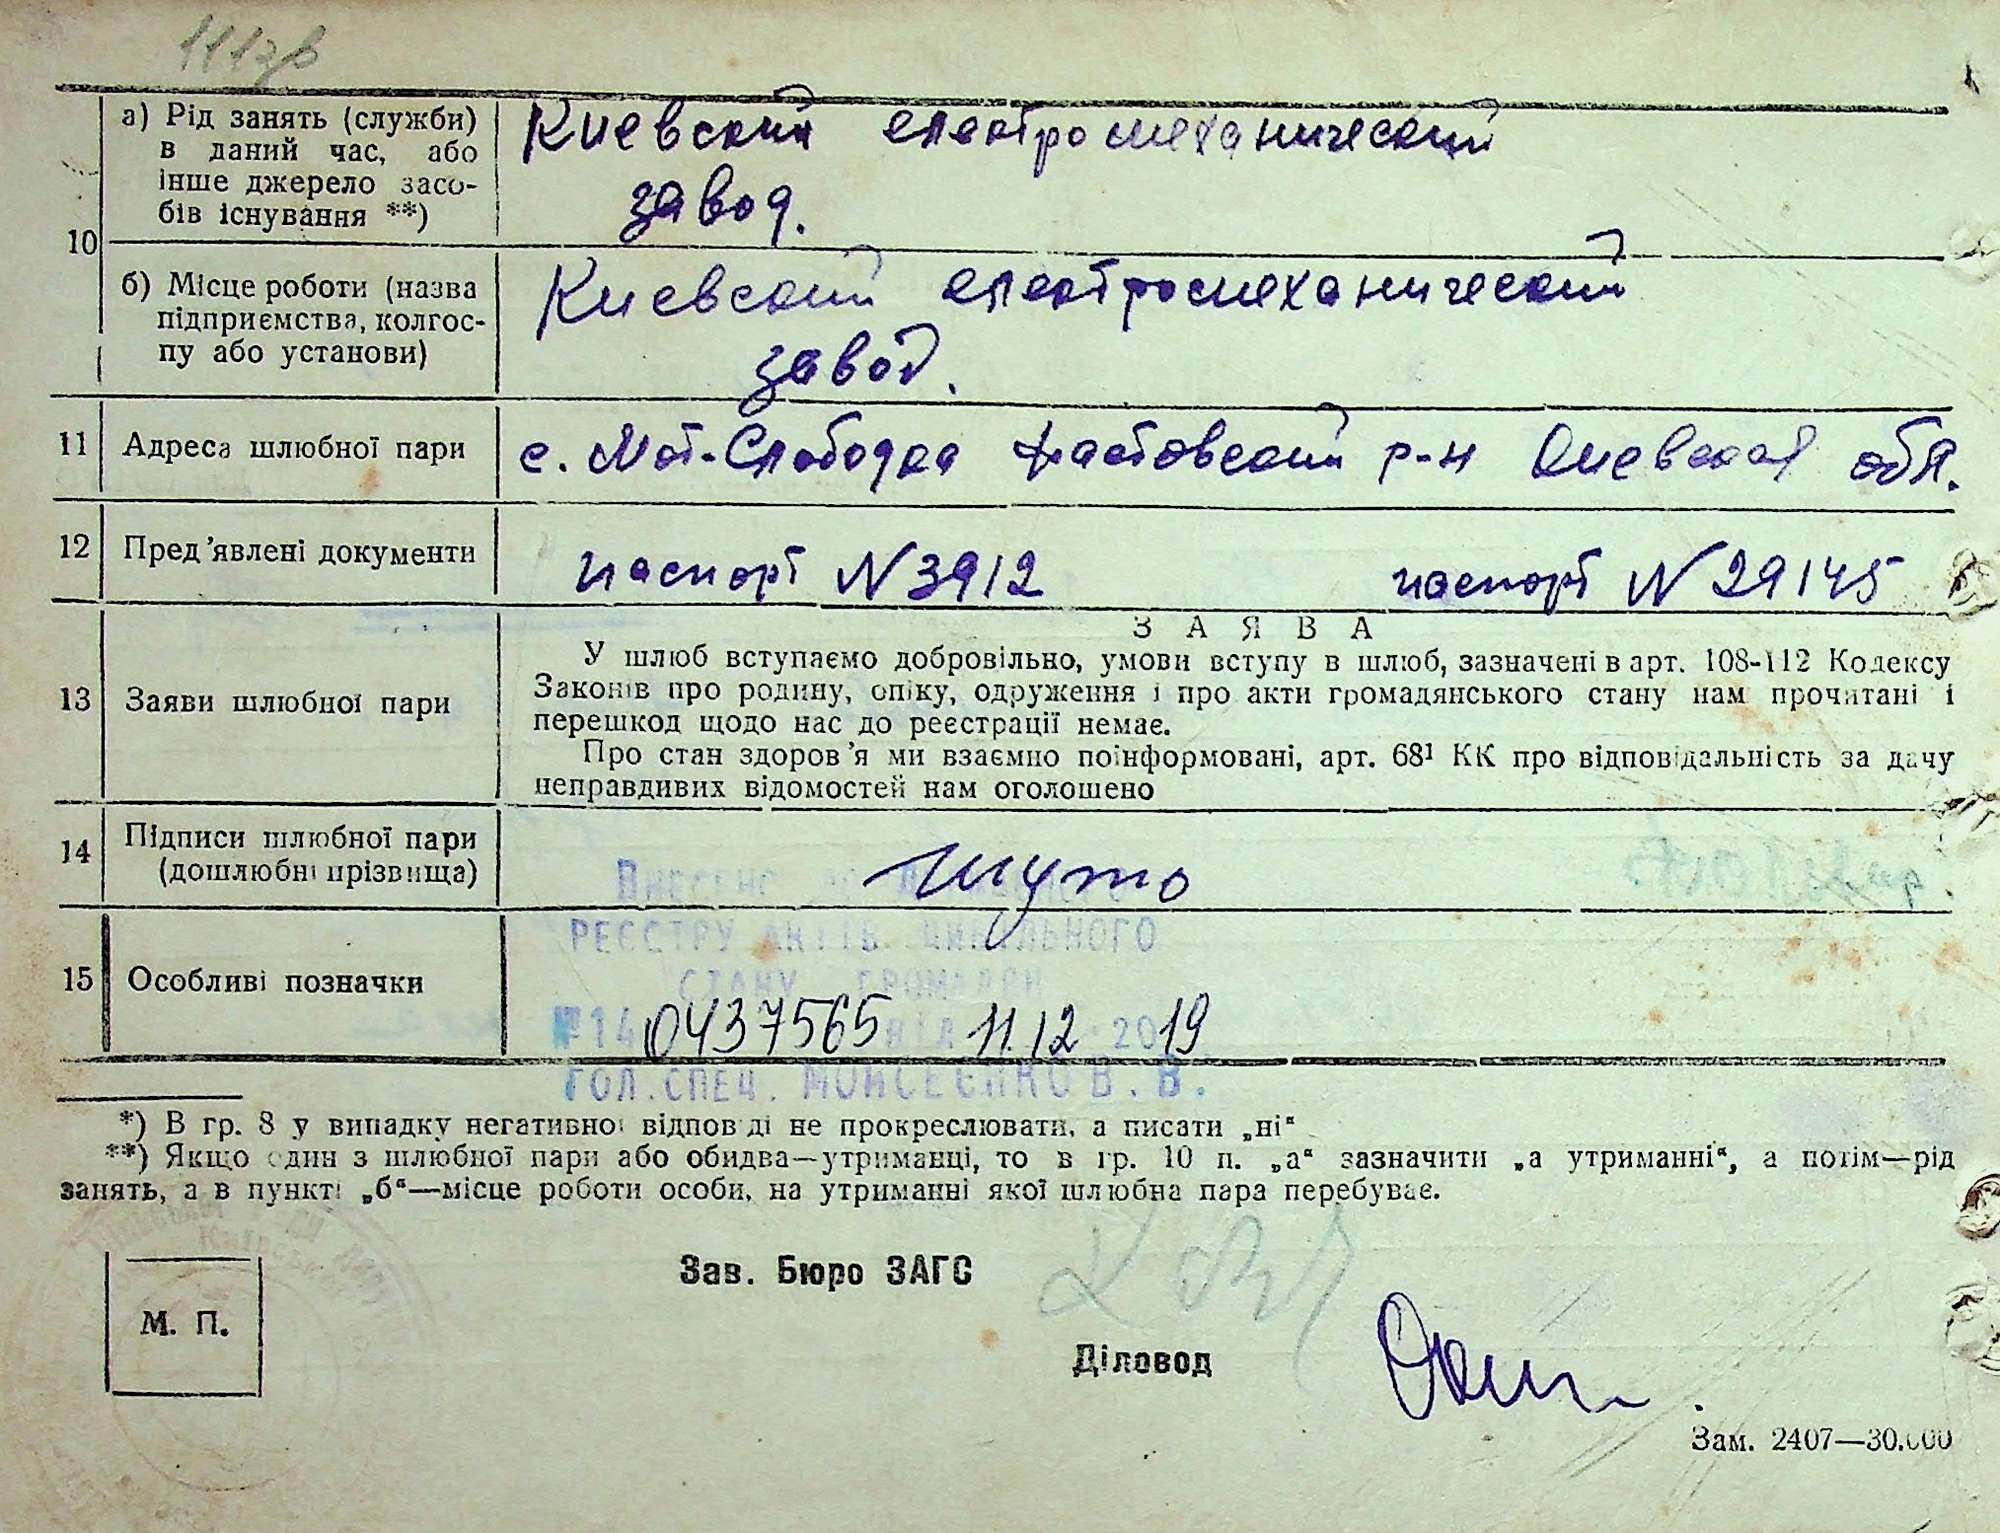 111зв
10
а) Рід занять (служби)
в даний час, або
інше джерело засо-
бів існування **)
Киевский електромеханический
завод.
б) Місце роботи (назва
підприємства, колгос-
пу або установи)
Киевский електромеханический
завод.
11 Адреса шлюбної пари с. Мот-Слободка Фастовский р-н Киевская обл.
12 Пред'явлені документи паспорт N 3912 паспорт N 29145
ЗАЯВА
13 Заяви шлюбної пари
У шлюб вступаємо добровільно, умови вступу в шлюб, зазначені в арт. 108-112 Кодексу
Законів про родину, опіку, одруження і про акти громадянського стану нам прочитані і
перешкод щодо нас до реєстрації немає.
Про стан здоров'я ми взаємно поінформовані, арт. 68¹ КК про відповідальність за дачу
неправдивих відомостей нам оголошено
14 Підписи шлюбної пари
(дошлюбні прізвища)
Шуто
Внесено до Державного
РЕЄСТРУ АКТІВ ЦИВІЛЬНОГО
СТАНУ ГРОМАДЯН
15 Особливі позначки
№ 14 0437565 від 11.12.2019
ГОЛ. СПЕЦ. МОИСЕЄНКО В. В.
*) В гр. 8 у випадку негативної відповіді не прокреслювати, а писати „ні“
**) Якщо один з шлюбної пари або обидва—утриманці, то в гр. 10 п. „а“ зазначити „а утриманні“, а потім—рід
занять, а в пункті „б“—місце роботи особи, на утриманні якої шлюбна пара перебуває.
Зав. Бюро ЗАГС
М. П.
Діловод
Зам. 2407—30.000